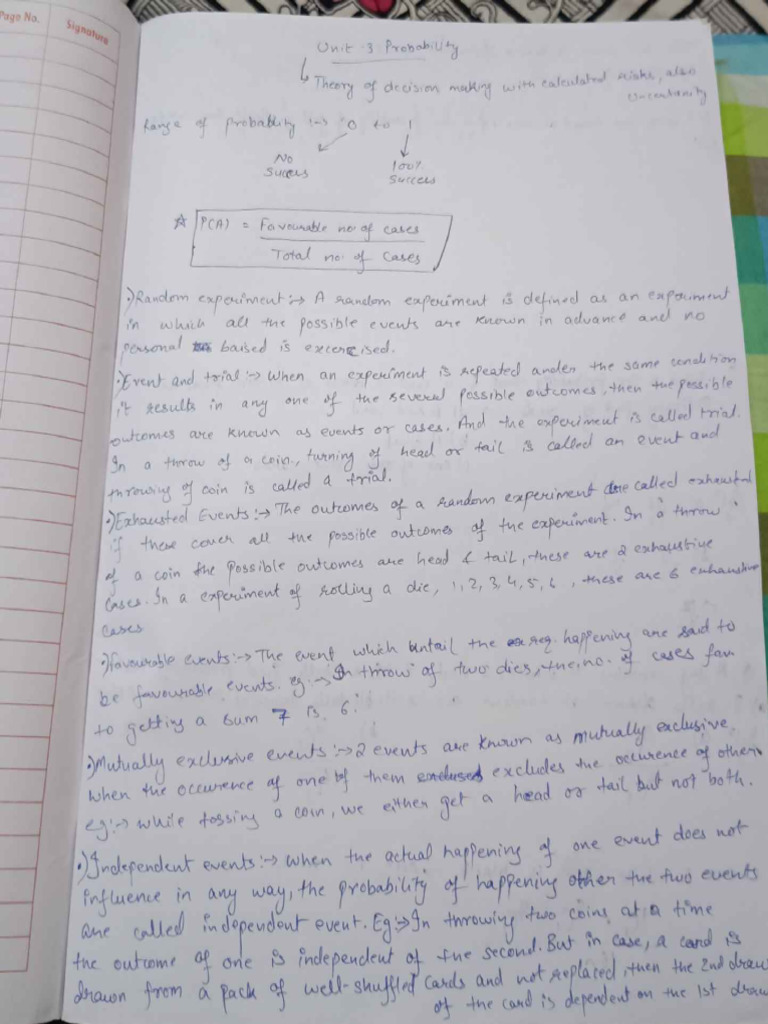 Page No.
Signature
Unit - 3 Probability
Theory of decision making with calculated risks, also
Uncertainity
Range of Probability :-> 0 to 1
No
Success
100%
Success
☆ P(A) = Favourable no. of cases
Total no. of cases
•) Random experiment :-> A random experiment is defined as an experiment
in which all the possible events are known in advance and no
personal baised is excercised.
•) Event and trial :-> When an experiment is repeated under the same condition
it results in any one of the several possible outcomes, then the possible
outcomes are known as events or cases. And the experiment is called trial.
In a throw of a coin, turning of head or tail is called an event and
throwing of coin is called a trial.
•) Exhausted Events :-> The outcomes of a random experiment are called exhausted
if these cover all the possible outcomes of the experiment. In a throw
of a coin the possible outcomes are head & tail, these are 2 exhaustive
cases. In a experiment of rolling a die, 1, 2, 3, 4, 5, 6, these are 6 exhaustive
cases
•) favourable events :-> The event which entail the req. happening are said to
be favourable events. eg :-> In throw of two dies, the no. of cases fav
to getting a sum 7 is 6.
•) Mutually exclusive events :-> 2 events are known as mutually exclusive,
when the occurence of one of them excludes the occurence of other.
eg :-> while tossing a coin, we either get a head or tail but not both.
•) Independent events :-> when the actual happening of one event does not
influence in any way, the probability of happening other the two events
are called independent event. Eg :-> In throwing two coins at a time
the outcome of one is independent of the second. But in case, a card is
drawn from a pack of well-shuffled cards and not replaced, then the 2nd draw
of the card is dependent on the 1st draw